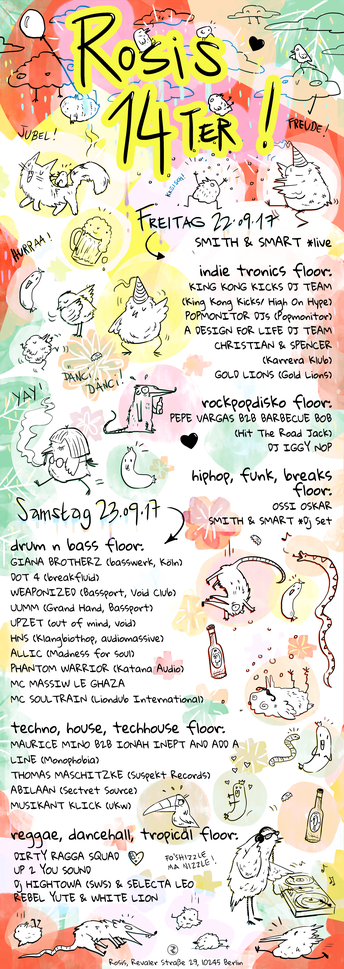 Rosis
14TER!
JUBEL!
FREUDE!
HURRAA!
FREITAG 22.09.17
SMITH & SMART *live
indie tronics floor:
KING KONG KICKS DJ TEAM
(King Kong Kicks/ High On Hype)
POPMONITOR DJs (Popmonitor)
A DESIGN FOR LIFE DJ TEAM
CHRISTIAN & SPENCER
(Karrera Klub)
GOLD LIONS (Gold Lions)
DANCI DANCI!
YAY!
rockpopdisko floor:
PEPE VARGAS B2B BARBECUE BOB
(Hit The Road Jack)
DJ IGGY NOP
hiphop, funk, breaks
floor:
OSSI OSKAR
SMITH & SMART *Dj Set
Samstag 23.09.17
drum n bass floor:
GIANA BROTHERZ (basswerk, Köln)
DOT 4 (breakfluid)
WEAPONIZED (Bassport, Void Club)
UUMM (Grand Hand, Bassport)
UPZET (out of mind, void)
HNS (Klangbiotop, audiomassive)
ALLIC (Madness for soul)
PHANTOM WARRIOR (Katana Audio)
MC MASSIW LE GHAZA
MC SOULTRAIN (Liondub International)
techno, house, techhouse floor:
MAURICE MINO B2B IONAH INEPT AND ADD A
LINE (Monophobia)
THOMAS MASCHITZKE (Suspekt Records)
ABILAAN (Sectret Source)
MUSIKANT KLICK (UKW)
reggae, dancehall, tropical floor:
DIRTY RAGGA SQUAD
UP 2 YOU SOUND
Dj HIGHTOWA (SWS) & SELECTA LEO
REBEL YUTE & WHITE LION
FO'SHIZZLE
MA NIZZLE!
Rosis, Revaler Straße 29, 10245 Berlin